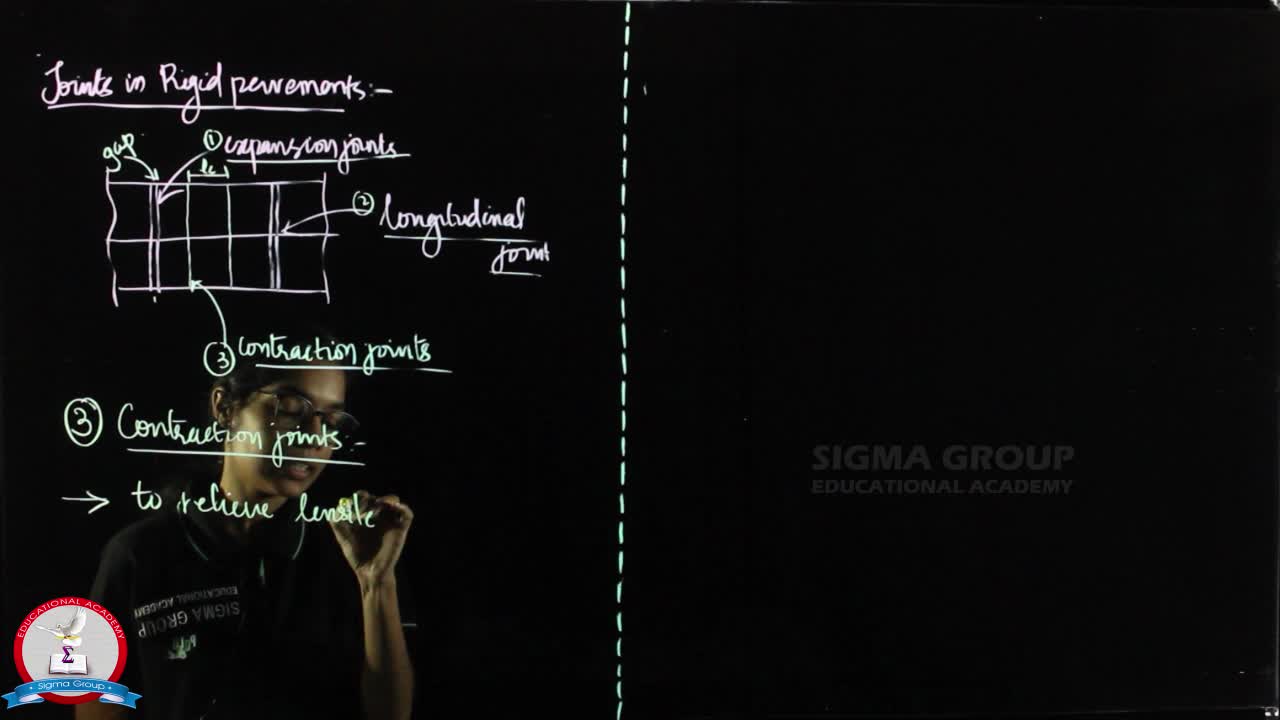 Joints in Rigid pavements:-
gap
① expansion joints
lc
② longitudinal
joint
③ contraction joints
③ Contraction joints:-
→ to relieve tensile
SIGMA GROUP
EDUCATIONAL ACADEMY
SIGMA GROUP
EDUCATIONAL ACADEMY
EDUCATIONAL ACADEMY
Σ
Sigma Group